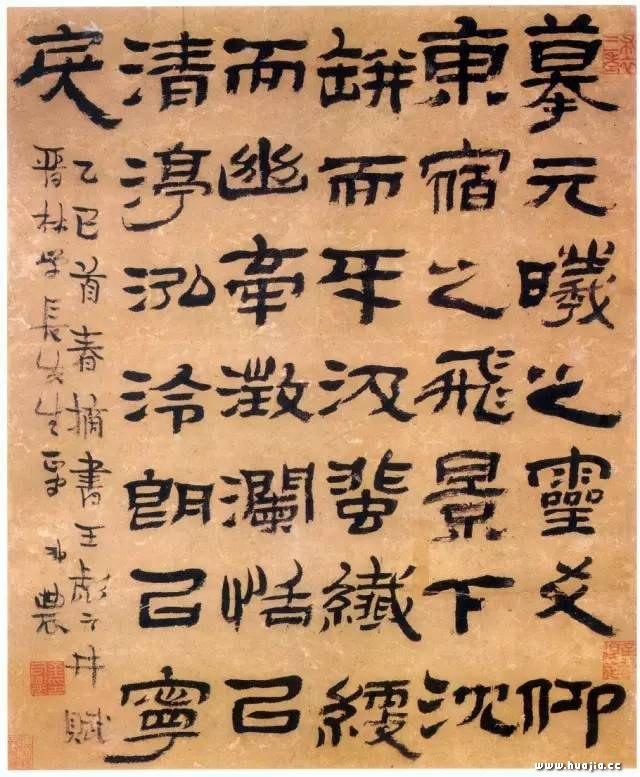 摹元曦之靈爻仰
東宿之飛景下沈
缾而牙汲蜚纖綆
而幽牽澂瀾恬㠯
清渟泓泠朗㠯寧
矣
乙巳首春摘書王彪之井賦
晋林学長先生正 農
www.huajia.cc